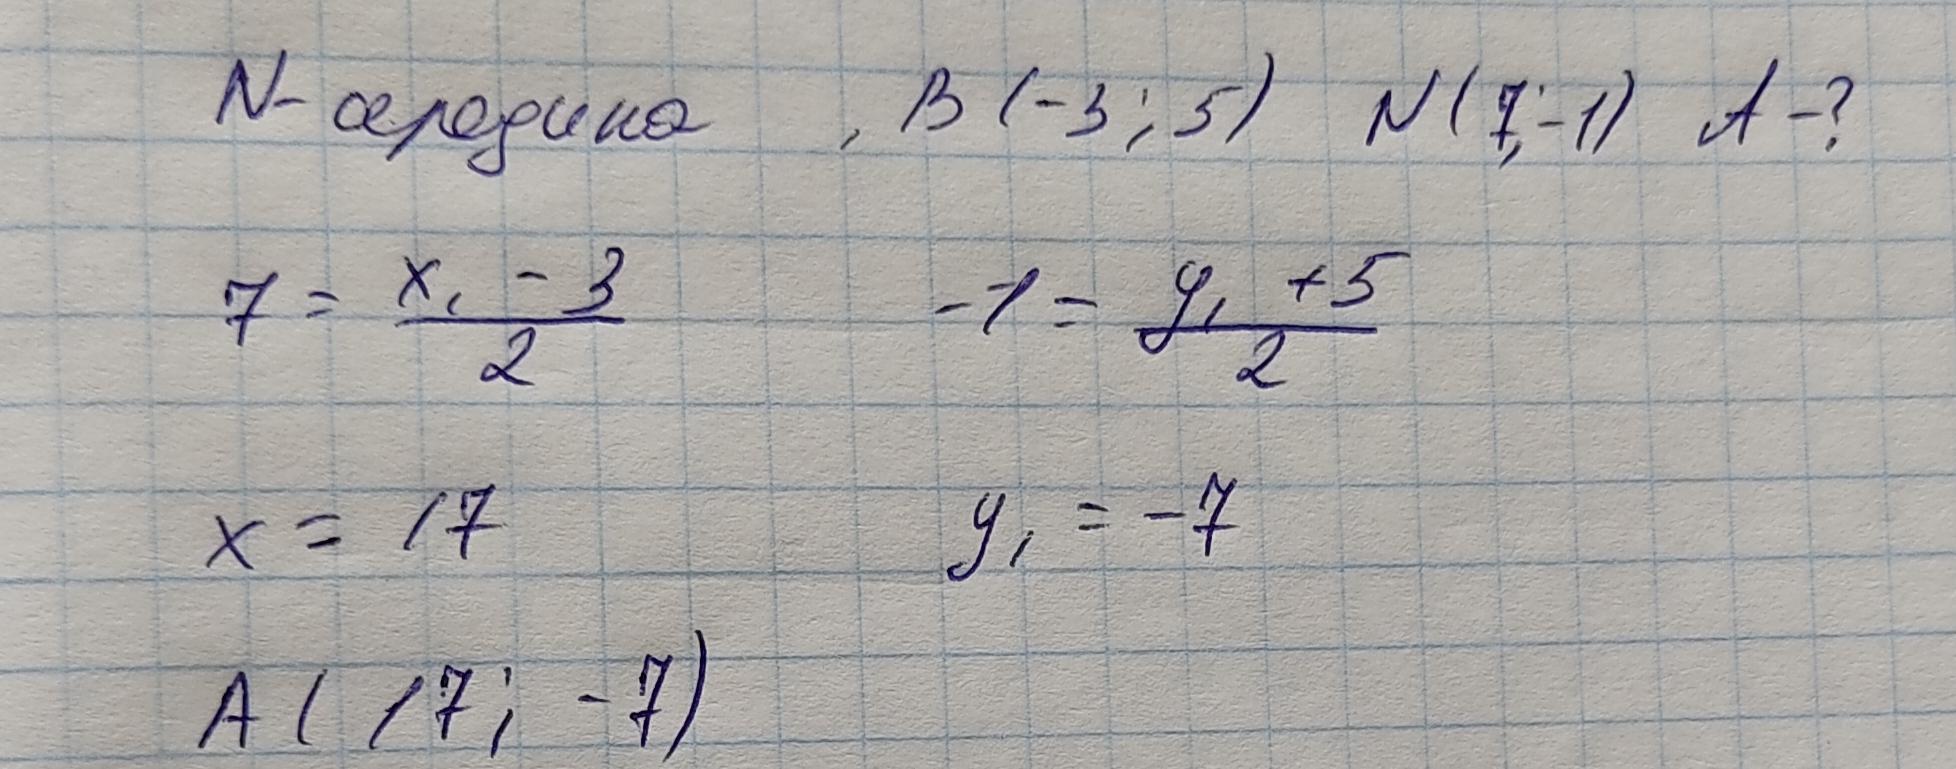 N- середина , B(-3; 5) N(7;-1) A-?
7 = (x₁ - 3)/2 -1 = (y₁ + 5)/2
x = 17 y₁ = -7
A(17; -7)